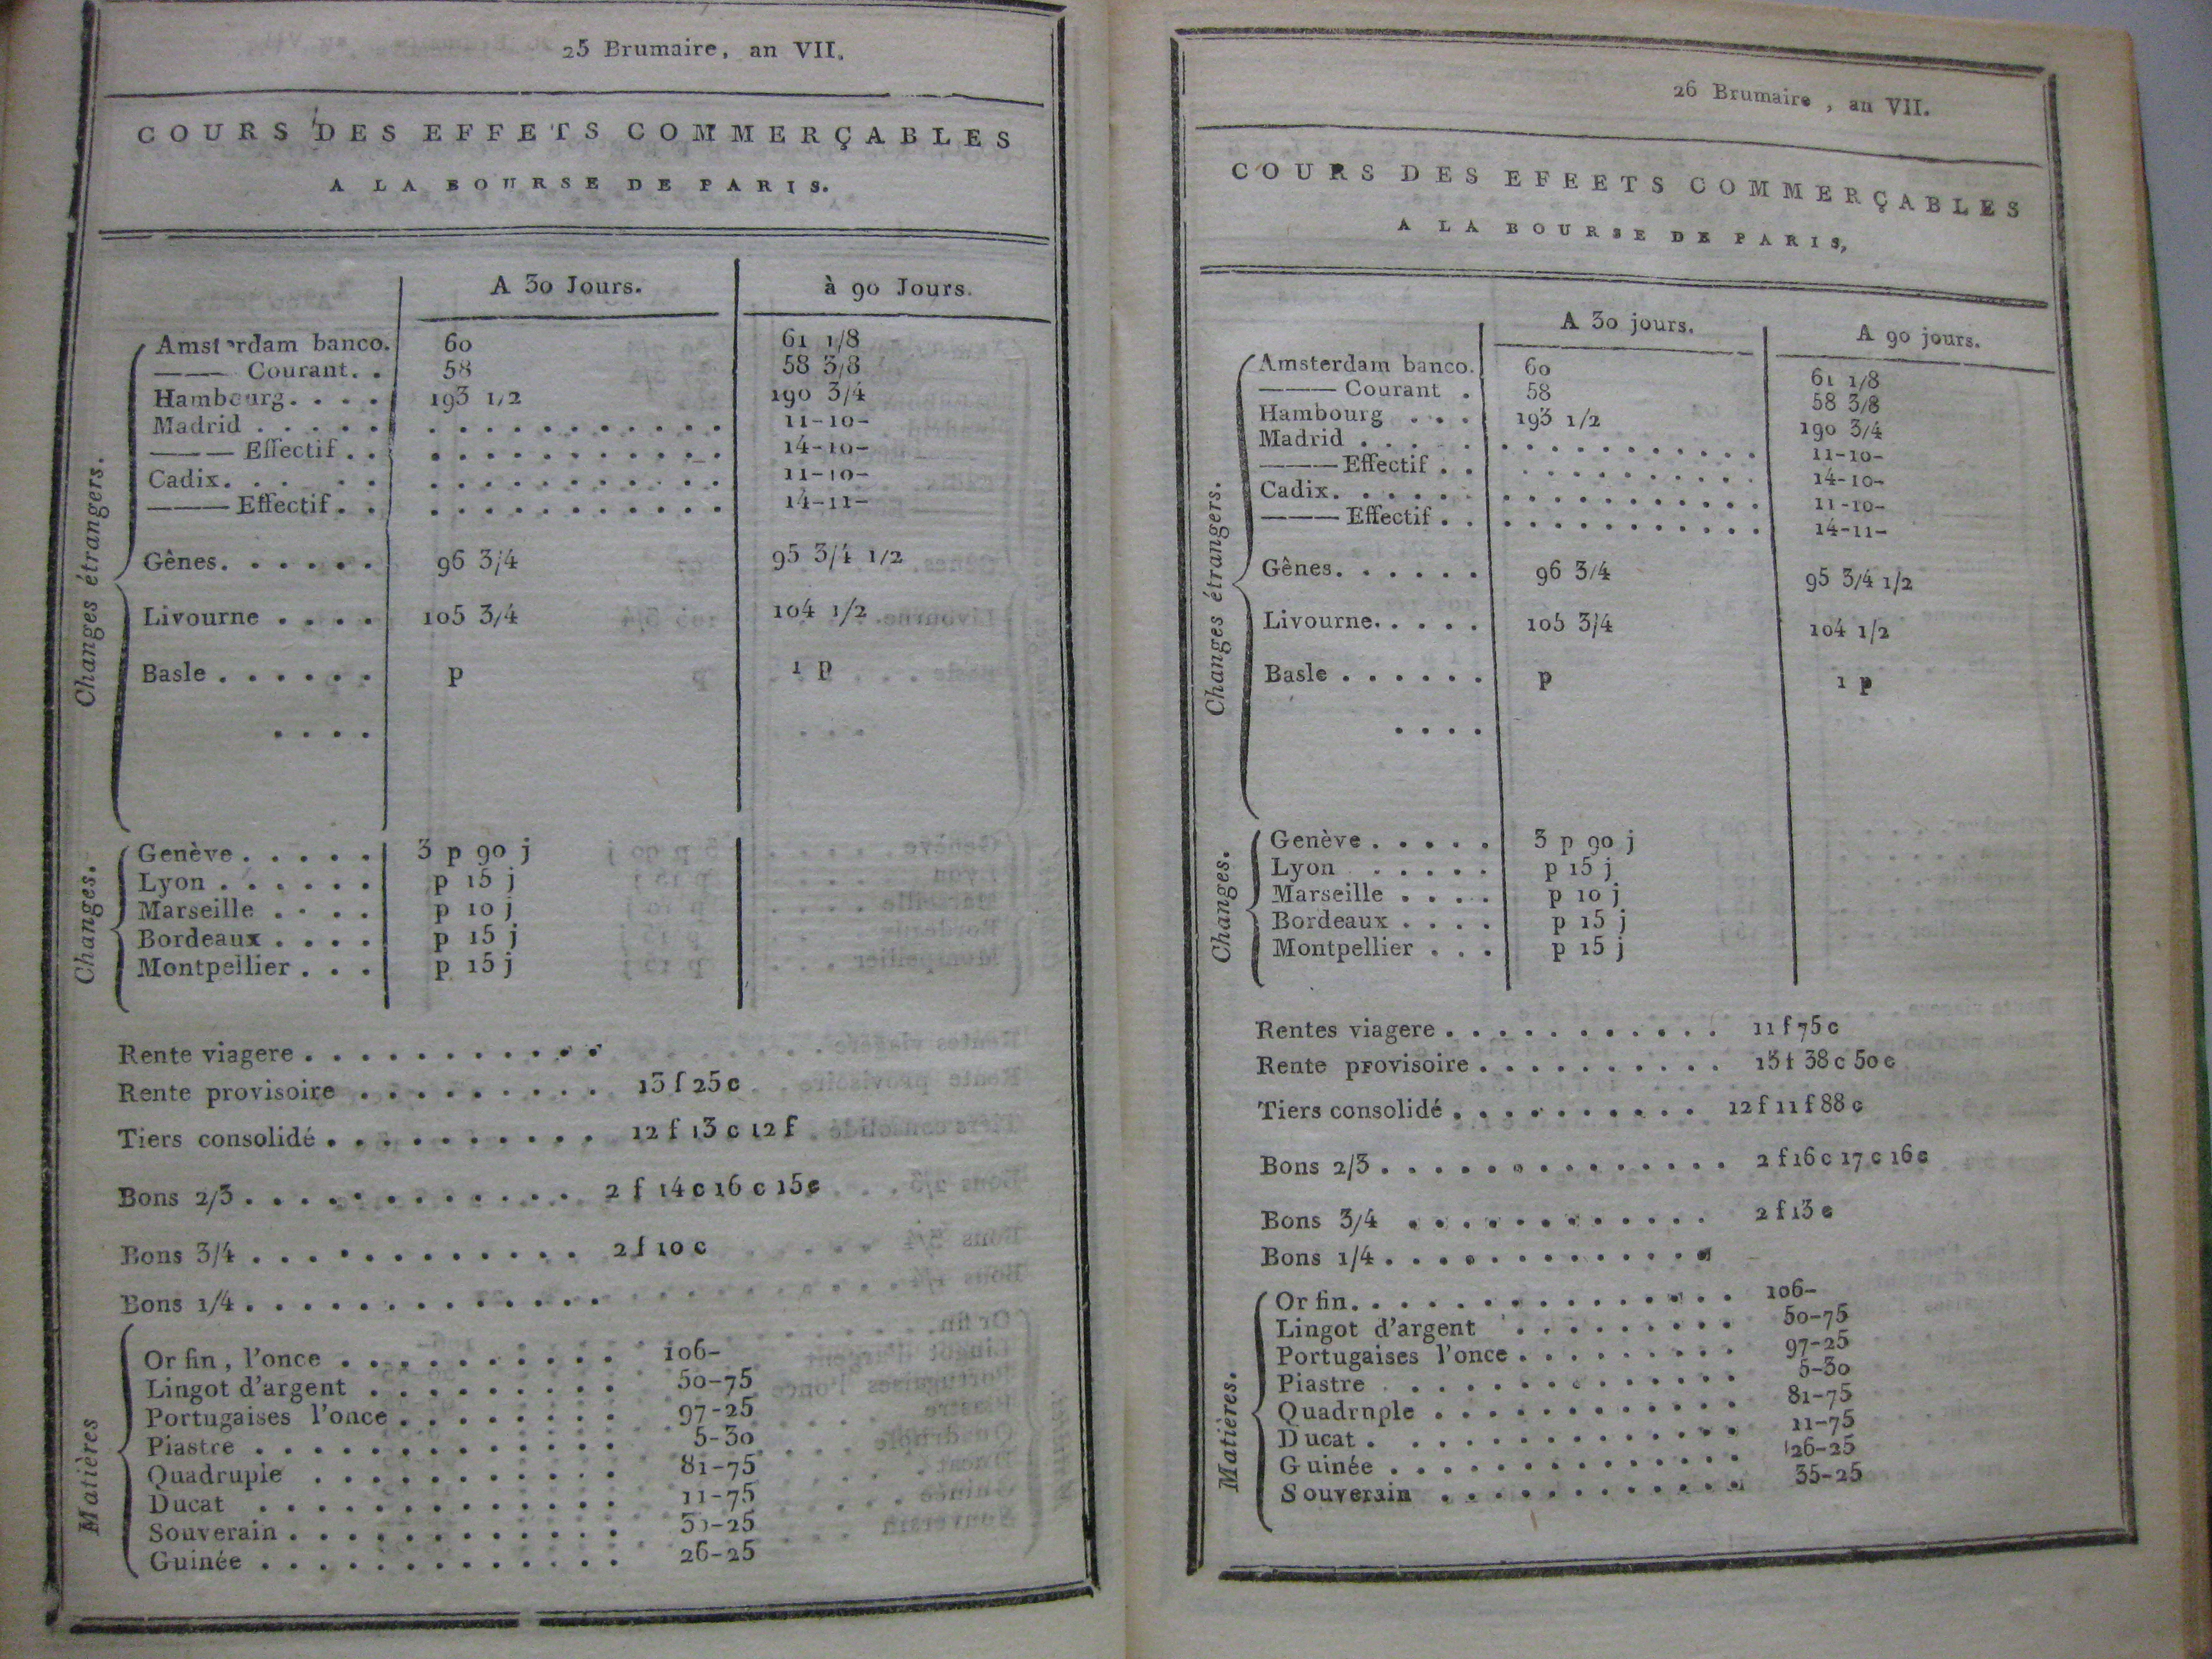 25 Brumaire, an VII.
COURS DES EFFETS COMMERÇABLES
A LA BOURSE DE PARIS.
A 30 Jours. à 90 Jours.
Changes étrangers.
Amsterdam banco. 60 61 1/8
——— Courant. . 58 58 3/8
Hambourg. . . . 193 1/2 190 3/4
Madrid . . . . . . . . . . . . . . . . 11-10-
——— Effectif . . . . . . . . . . . . . 14-10-
Cadix. . . . . . . . . . . . . . . . 11-10-
——— Effectif . . . . . . . . . . . . . 14-11-
Gênes. . . . . . 96 3/4 95 3/4 1/2
Livourne . . . . 105 3/4 104 1/2
Basle . . . . . . p 1 p
. . . .
Changes.
Genève . . . . . 3 p 90 j
Lyon . . . . . . p 15 j
Marseille . . . . p 10 j
Bordeaux . . . . p 15 j
Montpellier . . . p 15 j
Rente viagere . . . . . . . . . . .
Rente provisoire . . . . . . . . . 13 f 25 c
Tiers consolidé . . . . . . . . . . 12 f 13 c 12 f
Bons 2/3 . . . . . . . . . . . . 2 f 14 c 16 c 15 c
Bons 3/4 . . . . . . . . . . . . 2 f 10 c
Bons 1/4 . . . . . . . . . . . . .
Matières
Or fin, l'once . . . . . . . . . . 106-
Lingot d'argent . . . . . . . . . 50-75
Portugaises l'once . . . . . . . . 97-25
Piastre . . . . . . . . . . . . . 5-30
Quadruple . . . . . . . . . . . 81-75
Ducat . . . . . . . . . . . . . 11-75
Souverain . . . . . . . . . . . . 35-25
Guinée . . . . . . . . . . . . . 26-25
26 Brumaire, an VII.
COURS DES EFEETS COMMERÇABLES
A LA BOURSE DE PARIS,
A 30 jours. A 90 jours.
Changes étrangers.
Amsterdam banco. 60 61 1/8
——— Courant . 58 58 3/8
Hambourg . . . 193 1/2 190 3/4
Madrid . . . . . . . . . . . . . . . . 11-10-
——— Effectif . . . . . . . . . . . . 14-10-
Cadix. . . . . . . . . . . . . . . . . 11-10-
——— Effectif . . . . . . . . . . . . . 14-11-
Gênes. . . . . . 96 3/4 95 3/4 1/2
Livourne. . . . . 105 3/4 104 1/2
Basle . . . . . . p 1 p
. . . .
Changes.
Genève . . . . . 3 p 90 j
Lyon . . . . . p 15 j
Marseille . . . . p 10 j
Bordeaux . . . . p 15 j
Montpellier . . . p 15 j
Rentes viagere . . . . . . . . . . . 11 f 75 c
Rente provisoire . . . . . . . . . . 13 f 38 c 50 c
Tiers consolidé . . . . . . . . . . 12 f 11 f 88 c
Bons 2/3 . . . . . . . . . . . . . . 2 f 16 c 17 c 16 c
Bons 3/4 . . . . . . . . . . . . 2 f 13 c
Bons 1/4 . . . . . . . . . . . . .
Matières.
Or fin. . . . . . . . . . . . . . . 106-
Lingot d'argent . . . . . . . . . 50-75
Portugaises l'once . . . . . . . . . 97-25
Piastre . . . . . . . . . . . . . 5-30
Quadrnple . . . . . . . . . . . . 81-75
Ducat . . . . . . . . . . . . . . 11-75
Guinée . . . . . . . . . . . . . . 26-25
Souverain . . . . . . . . . . . . 35-25